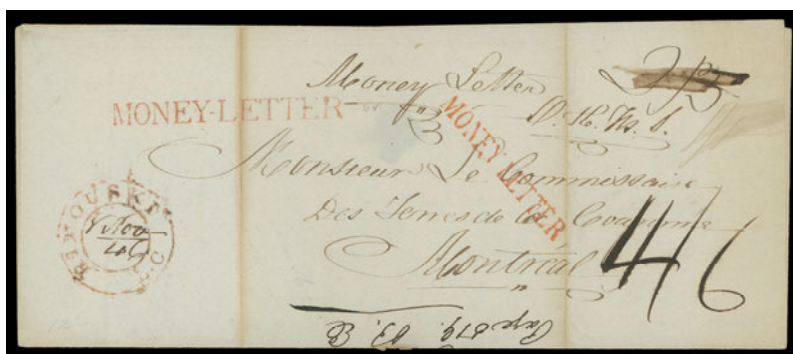 Money Letter
MONEY-LETTER
MONEY-LETTER
O. H. M. S.
Monsieur Le Commissaire
Des Terres de la Couronne
Montréal
4/6
RIMOUSKI
L.C
Page 819.
B. B